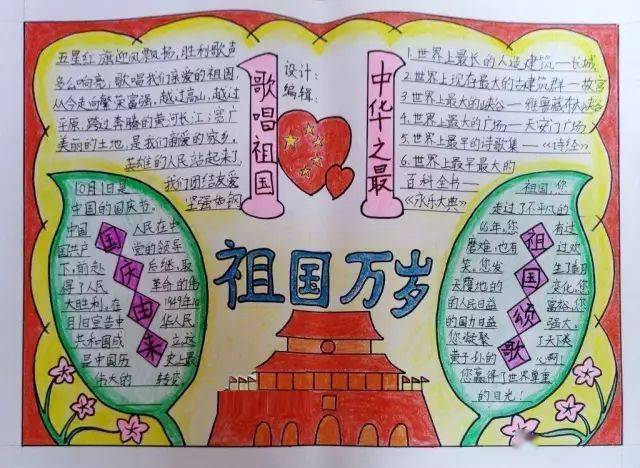 五星红旗迎风飘扬,胜利歌声
多么响亮,歌唱我们亲爱的祖国,
从今走向繁荣富强,越过高山,越过
平原,跨过奔腾的黄河长江;宽广
美丽的土地,是我们亲爱的家乡,
英雄的人民站起来了
我们团结友爱
坚强如钢
歌唱祖国
设计:
编辑:
中华之最
1.世界上最长的人造建筑——长城
2.世界上现存最大的古建筑群——故宫
3.世界上最大的峡谷——雅鲁藏布大峡谷
4.世界上最大的广场——天安门广场
5.世界上最早的诗歌集——《诗经》
6.世界上最早最大的
百科全书——
《永乐大典》
祖国万岁
国庆由来
10月1日是
中国的国庆节。
中国 人民在中
国共产 党的领导
下,前赴 后继,取
得了人民 革命的伟
大胜利。在 1949年10
月1日宣告中 华人民
共和国成 立,这
是中国历 史上最
伟大的 转变
祖国颂歌
祖国,您
走过了不平凡的
66年,您 有过
磨难,也有 过欢
笑。您发 生了翻
天覆地的 变化。您
的人民日益 富裕,您
的国力日益 强大。
您凝聚 了天下
黄子孙的 心啊!
您赢得了世界尊重
的目光!